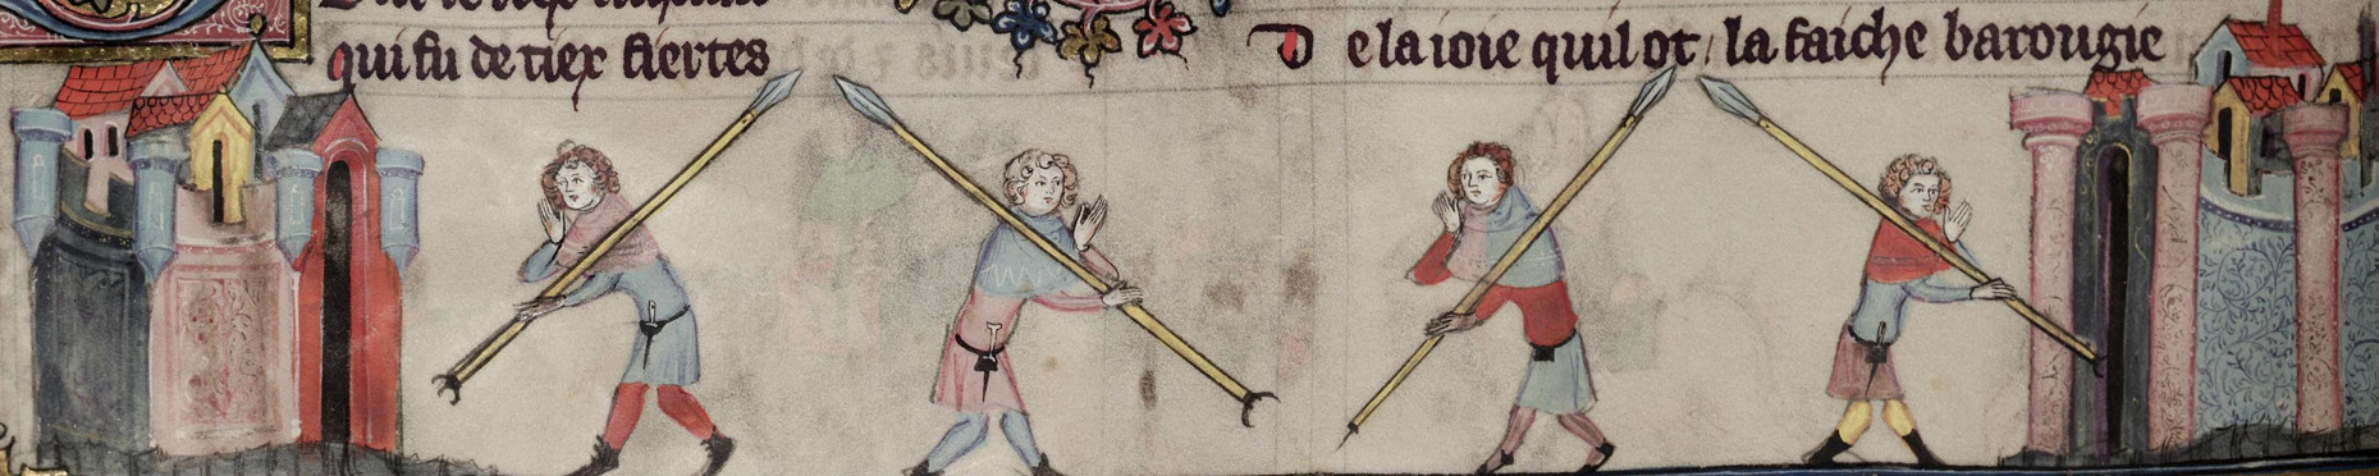 qui fu de tiex fiertes
De la ioie quil ot / la faiche barougie